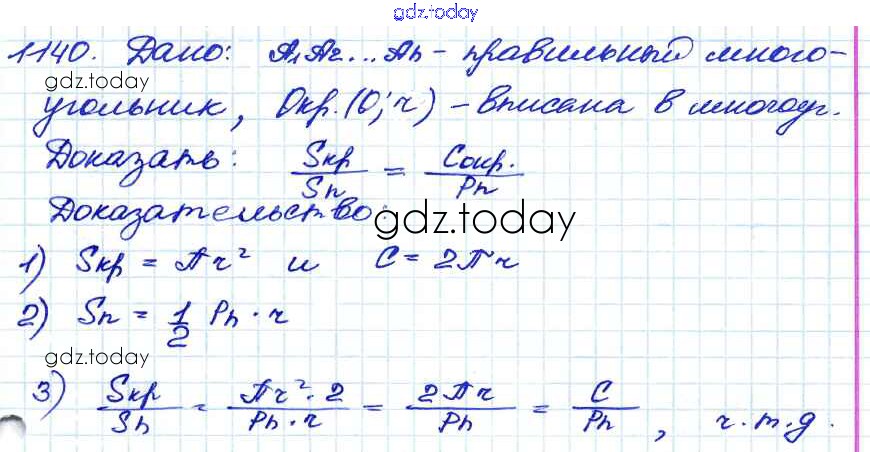 gdz.today
1140. Дано: A₁A₂...Aₙ - правильный много-
gdz.today
угольник, Окр.(O; r) - вписана в многоуг.
Доказать: Sкр/Sn = Cокр./Pn
Доказательство:
gdz.today
1) Sкр = πr² и C = 2πr
2) Sn = 1/2 Pn · r
gdz.today
3) Sкр/Sn = πr² · 2/Pn · r = 2πr/Pn = C/Pn, ч.т.д.